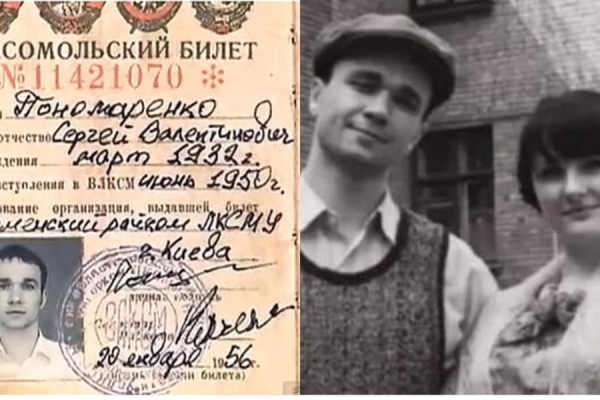 КОМСОМОЛЬСКИЙ БИЛЕТ
№ 11421070 *
Пономаренко
отчество Сергей Валентинович
ждения март 1932 г.
вступления в ВЛКСМ июнь 1950 г.
ование организации, выдавшей билет
менский райком ЛКСМУ
г. Киева
20 января 1956 г.
билета)